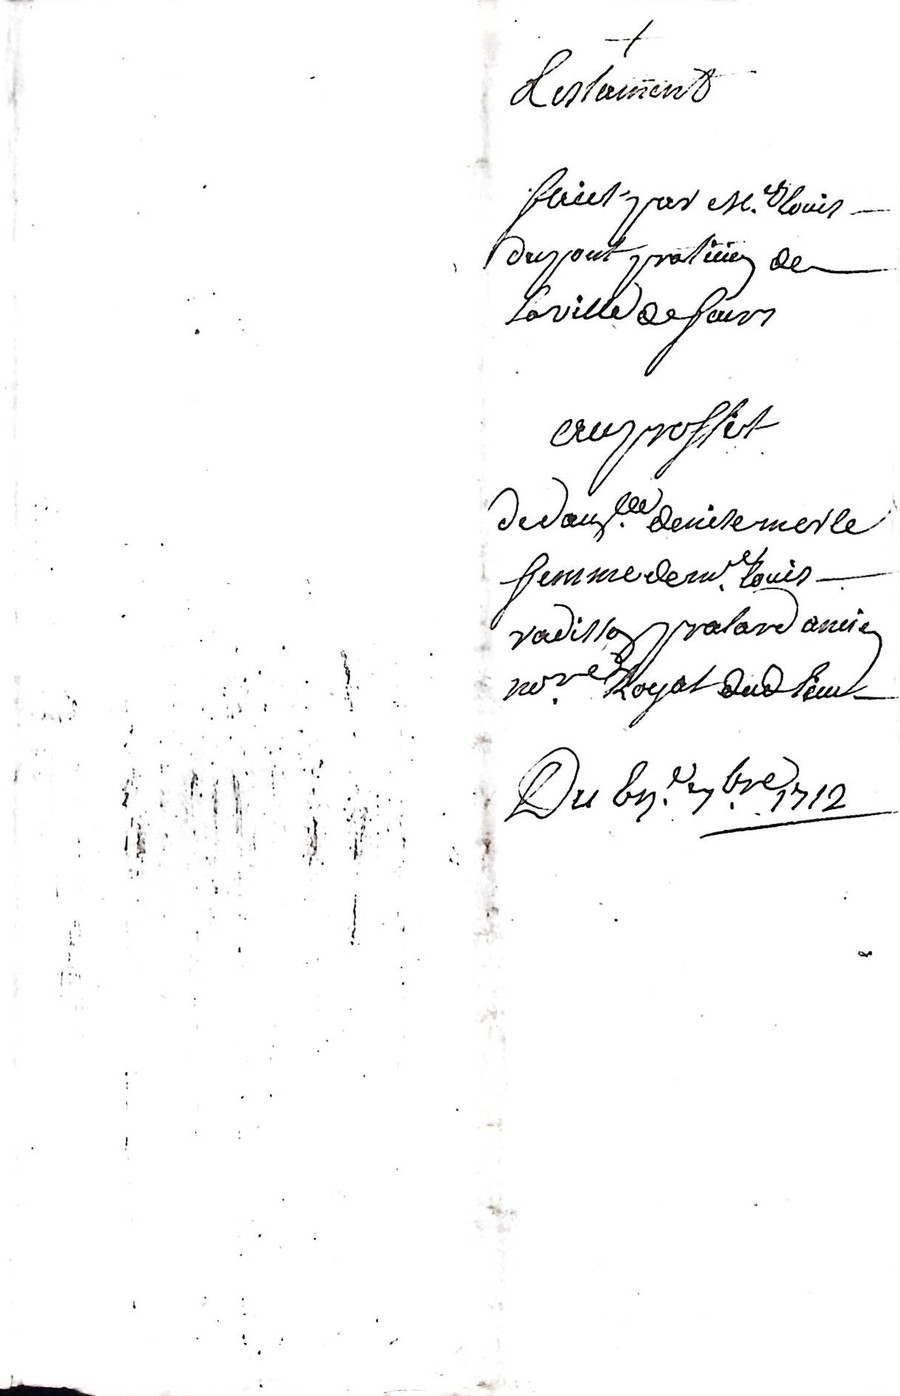 +
Testament
faict par Me. Louis
dupont praticien de
la ville de
au proffict
de dauslle. denise merle
femme de mre. louis
pralard ancien
nore. Royal dud. lieu
Du 7bre. 1712